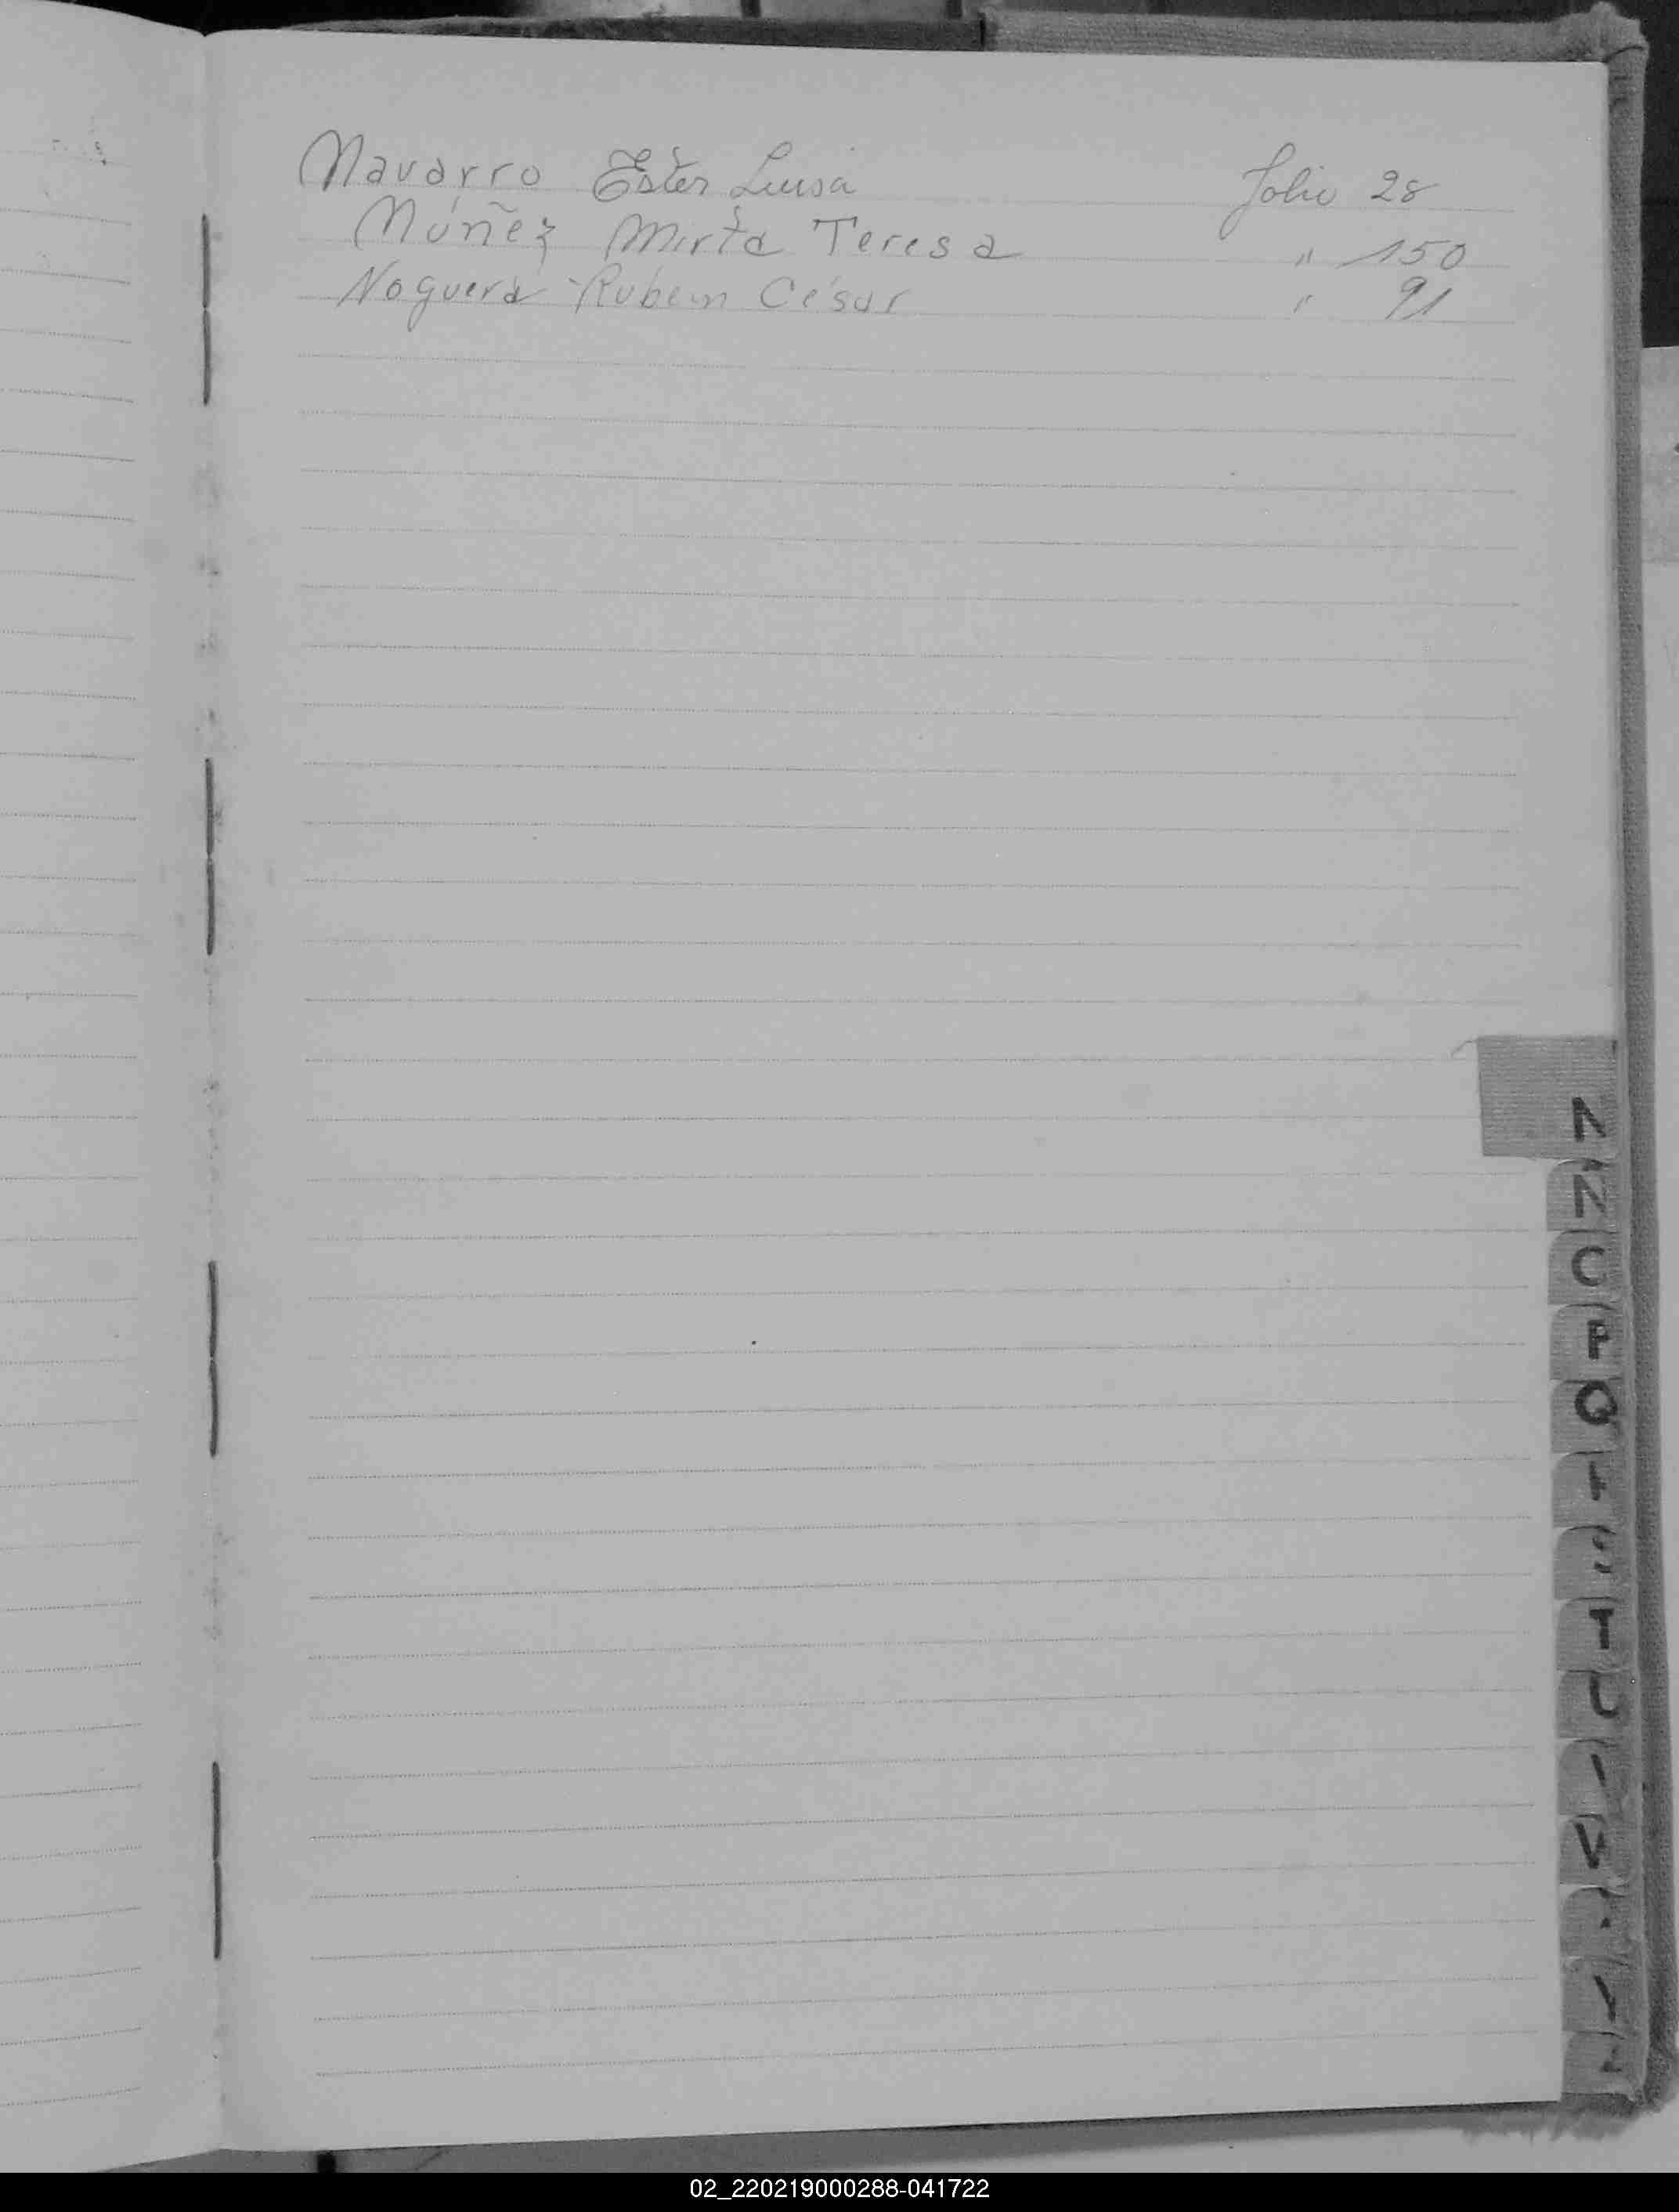 Navarro Ester Luisa Folio 28
Núñez Mirta Teresa " 150
Noguera Ruben César " 91
N
Ñ
O
P
Q
V
02_220219000288-041722